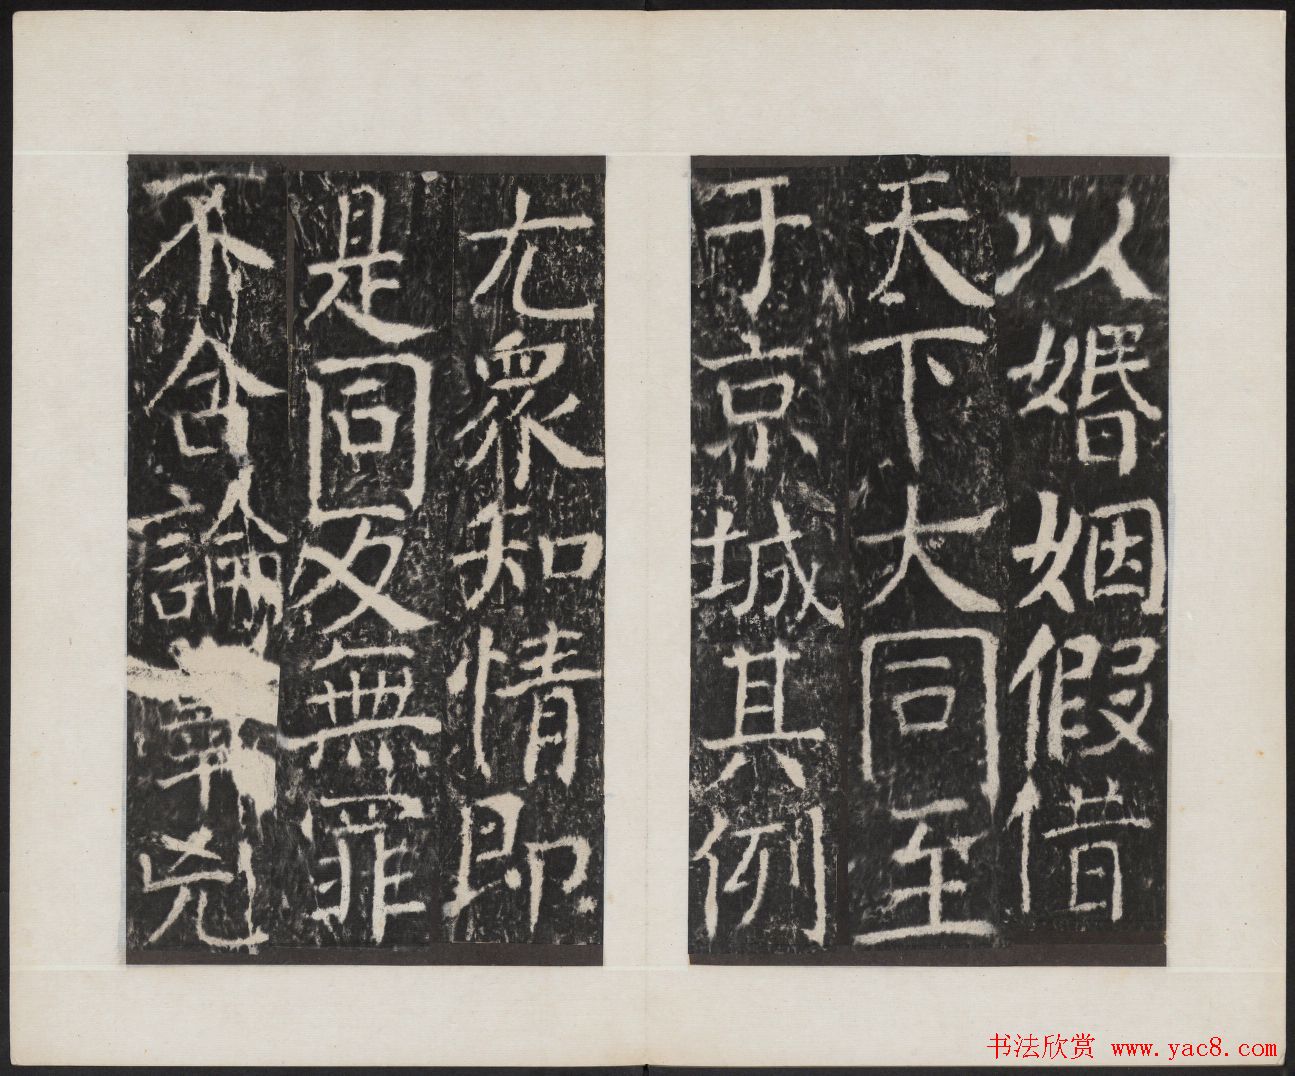 以婚姻假借
天下大同至
于京城其例
尤衆知情即
是同及無罪
不合論兇
书法欣赏 www.yac8.com